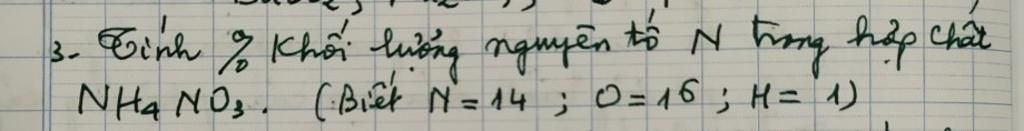 3. Tính % Khối lượng nguyên tố N trong hợp chất
NH4 NO3. (Biết N = 14 ; O = 16 ; H = 1)